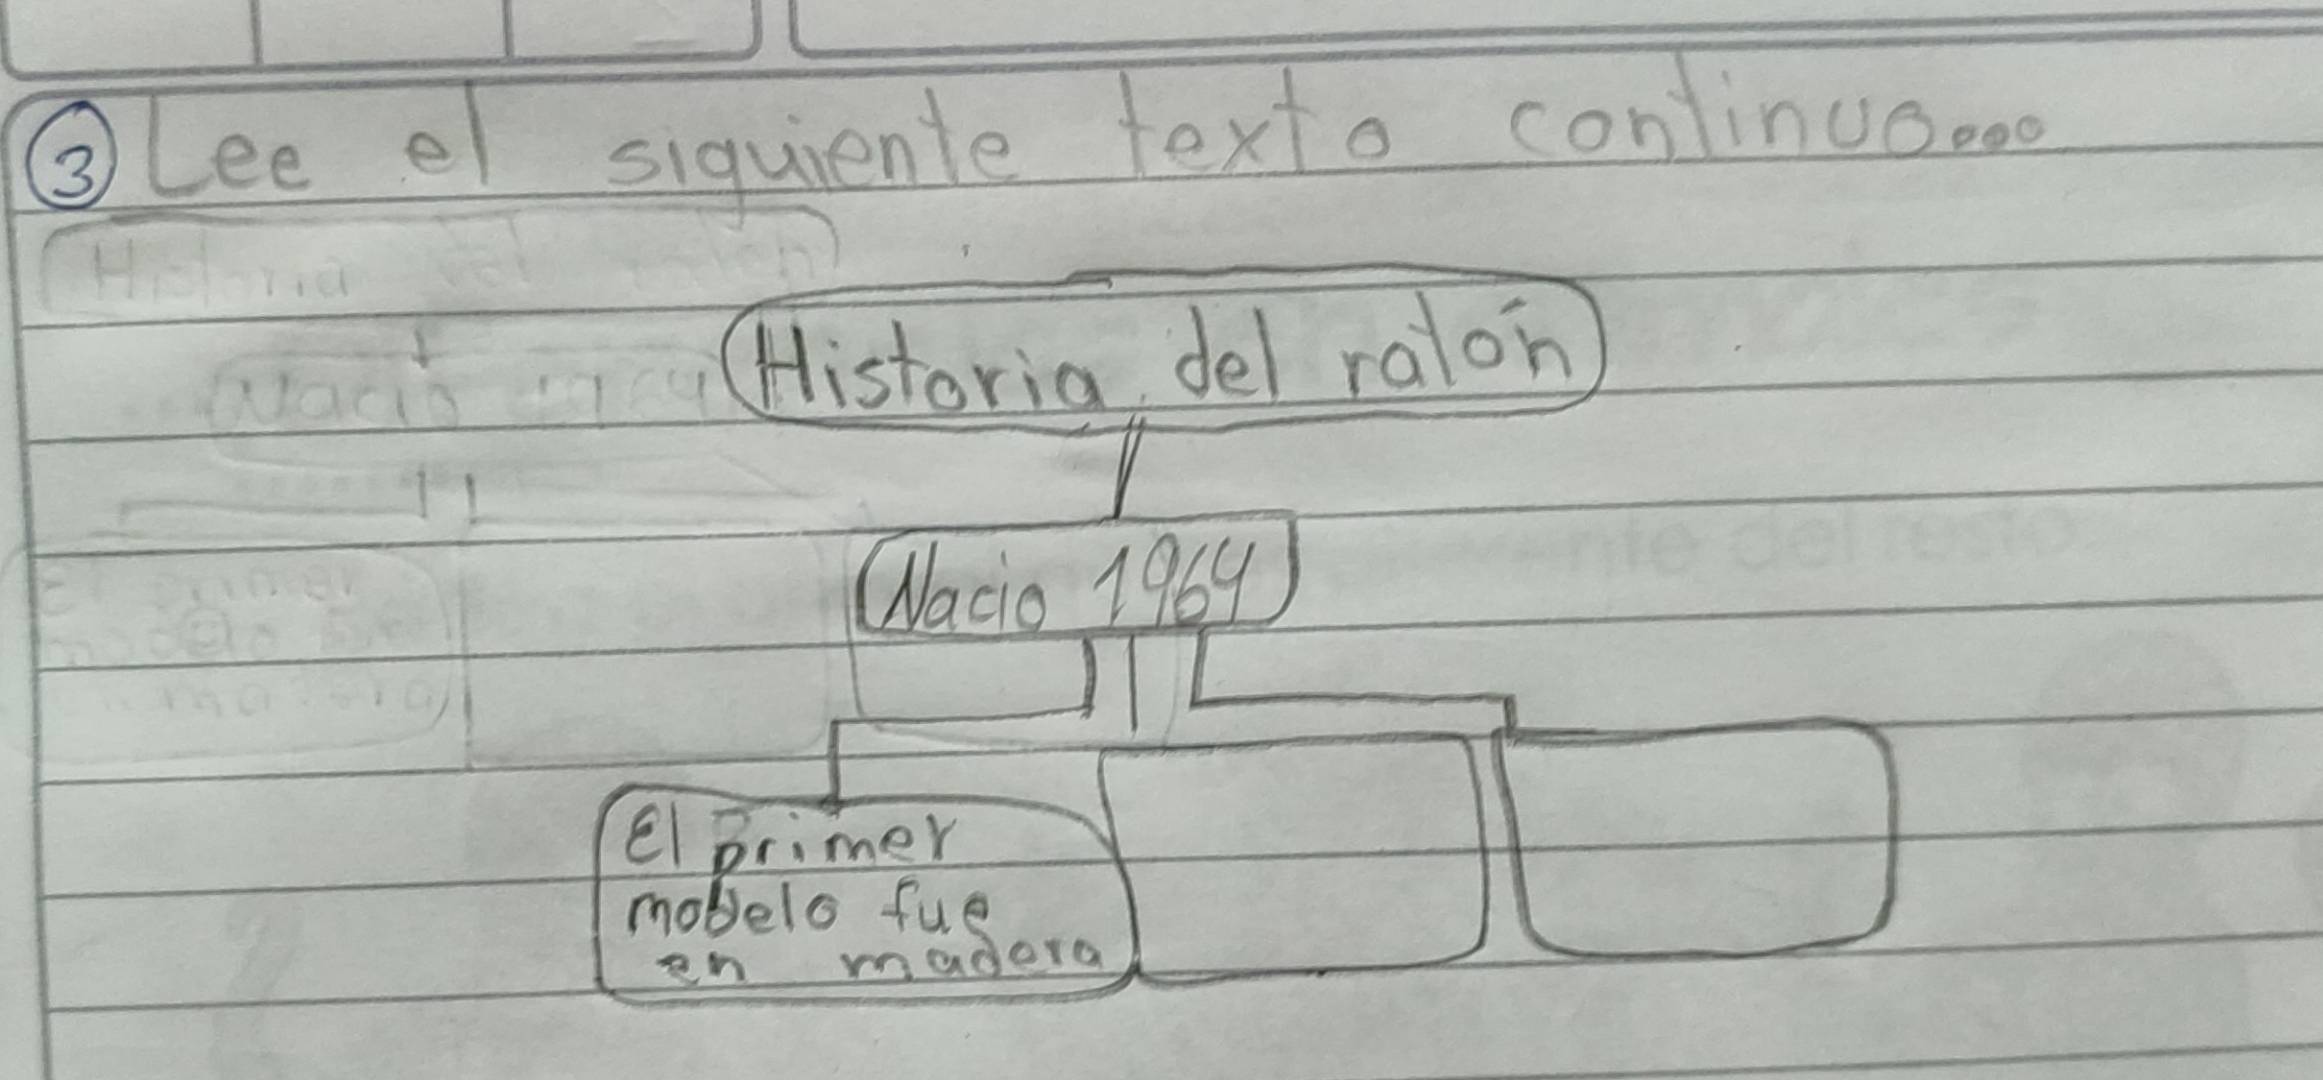 ③ Lee el siguiente texto continuo....
Historia del ratón
Nacio 1964
El primer
modelo fue
en madera